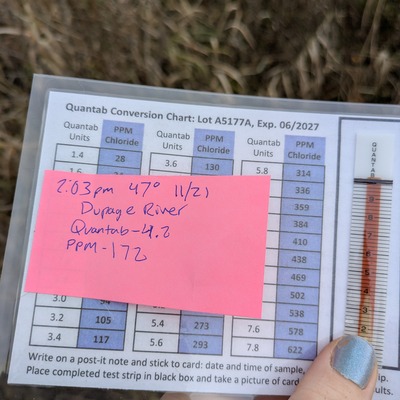 Quantab Conversion Chart: Lot A5177A, Exp. 06/2027
Quantab Units PPM Chloride Quantab Units PPM Chloride Quantab Units PPM Chloride
1.4 28 3.6 130 5.8 314
336
359
384
410
438
469
502
538
3.0 94
3.2 105 5.4 273 7.6 578
3.4 117 5.6 293 7.8 622
2:03pm 47° 11/21
Dupage River
Quantab-4.2
PPM-172
Write on a post-it note and stick to card: date and time of sample,
Place completed test strip in black box and take a picture of card
QUANTAB
9
8
7
6
5
4
3
2
ip.
ults.